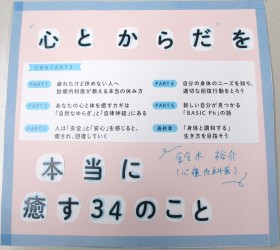 “心とからだ”を
CONTENTS
PART1 疲れたけど休めない人へ
診療内科医が教える本当の休み方
PART2 あなたの心と体を癒すカギは
「自然なゆらぎ」と「自律神経」にある
PART3 人は「安全」と「安心」を感じると、
癒され、回復していく
PART4 自分の身体のニーズを知り、
適切な回復行動をとろう
PART5 新しい自分が見つかる
「BASIC Ph」の話
最終章 「身体と調和する」
生き方を目指そう
鈴木 裕介
(心療内科医)
本当に
癒す34のこと